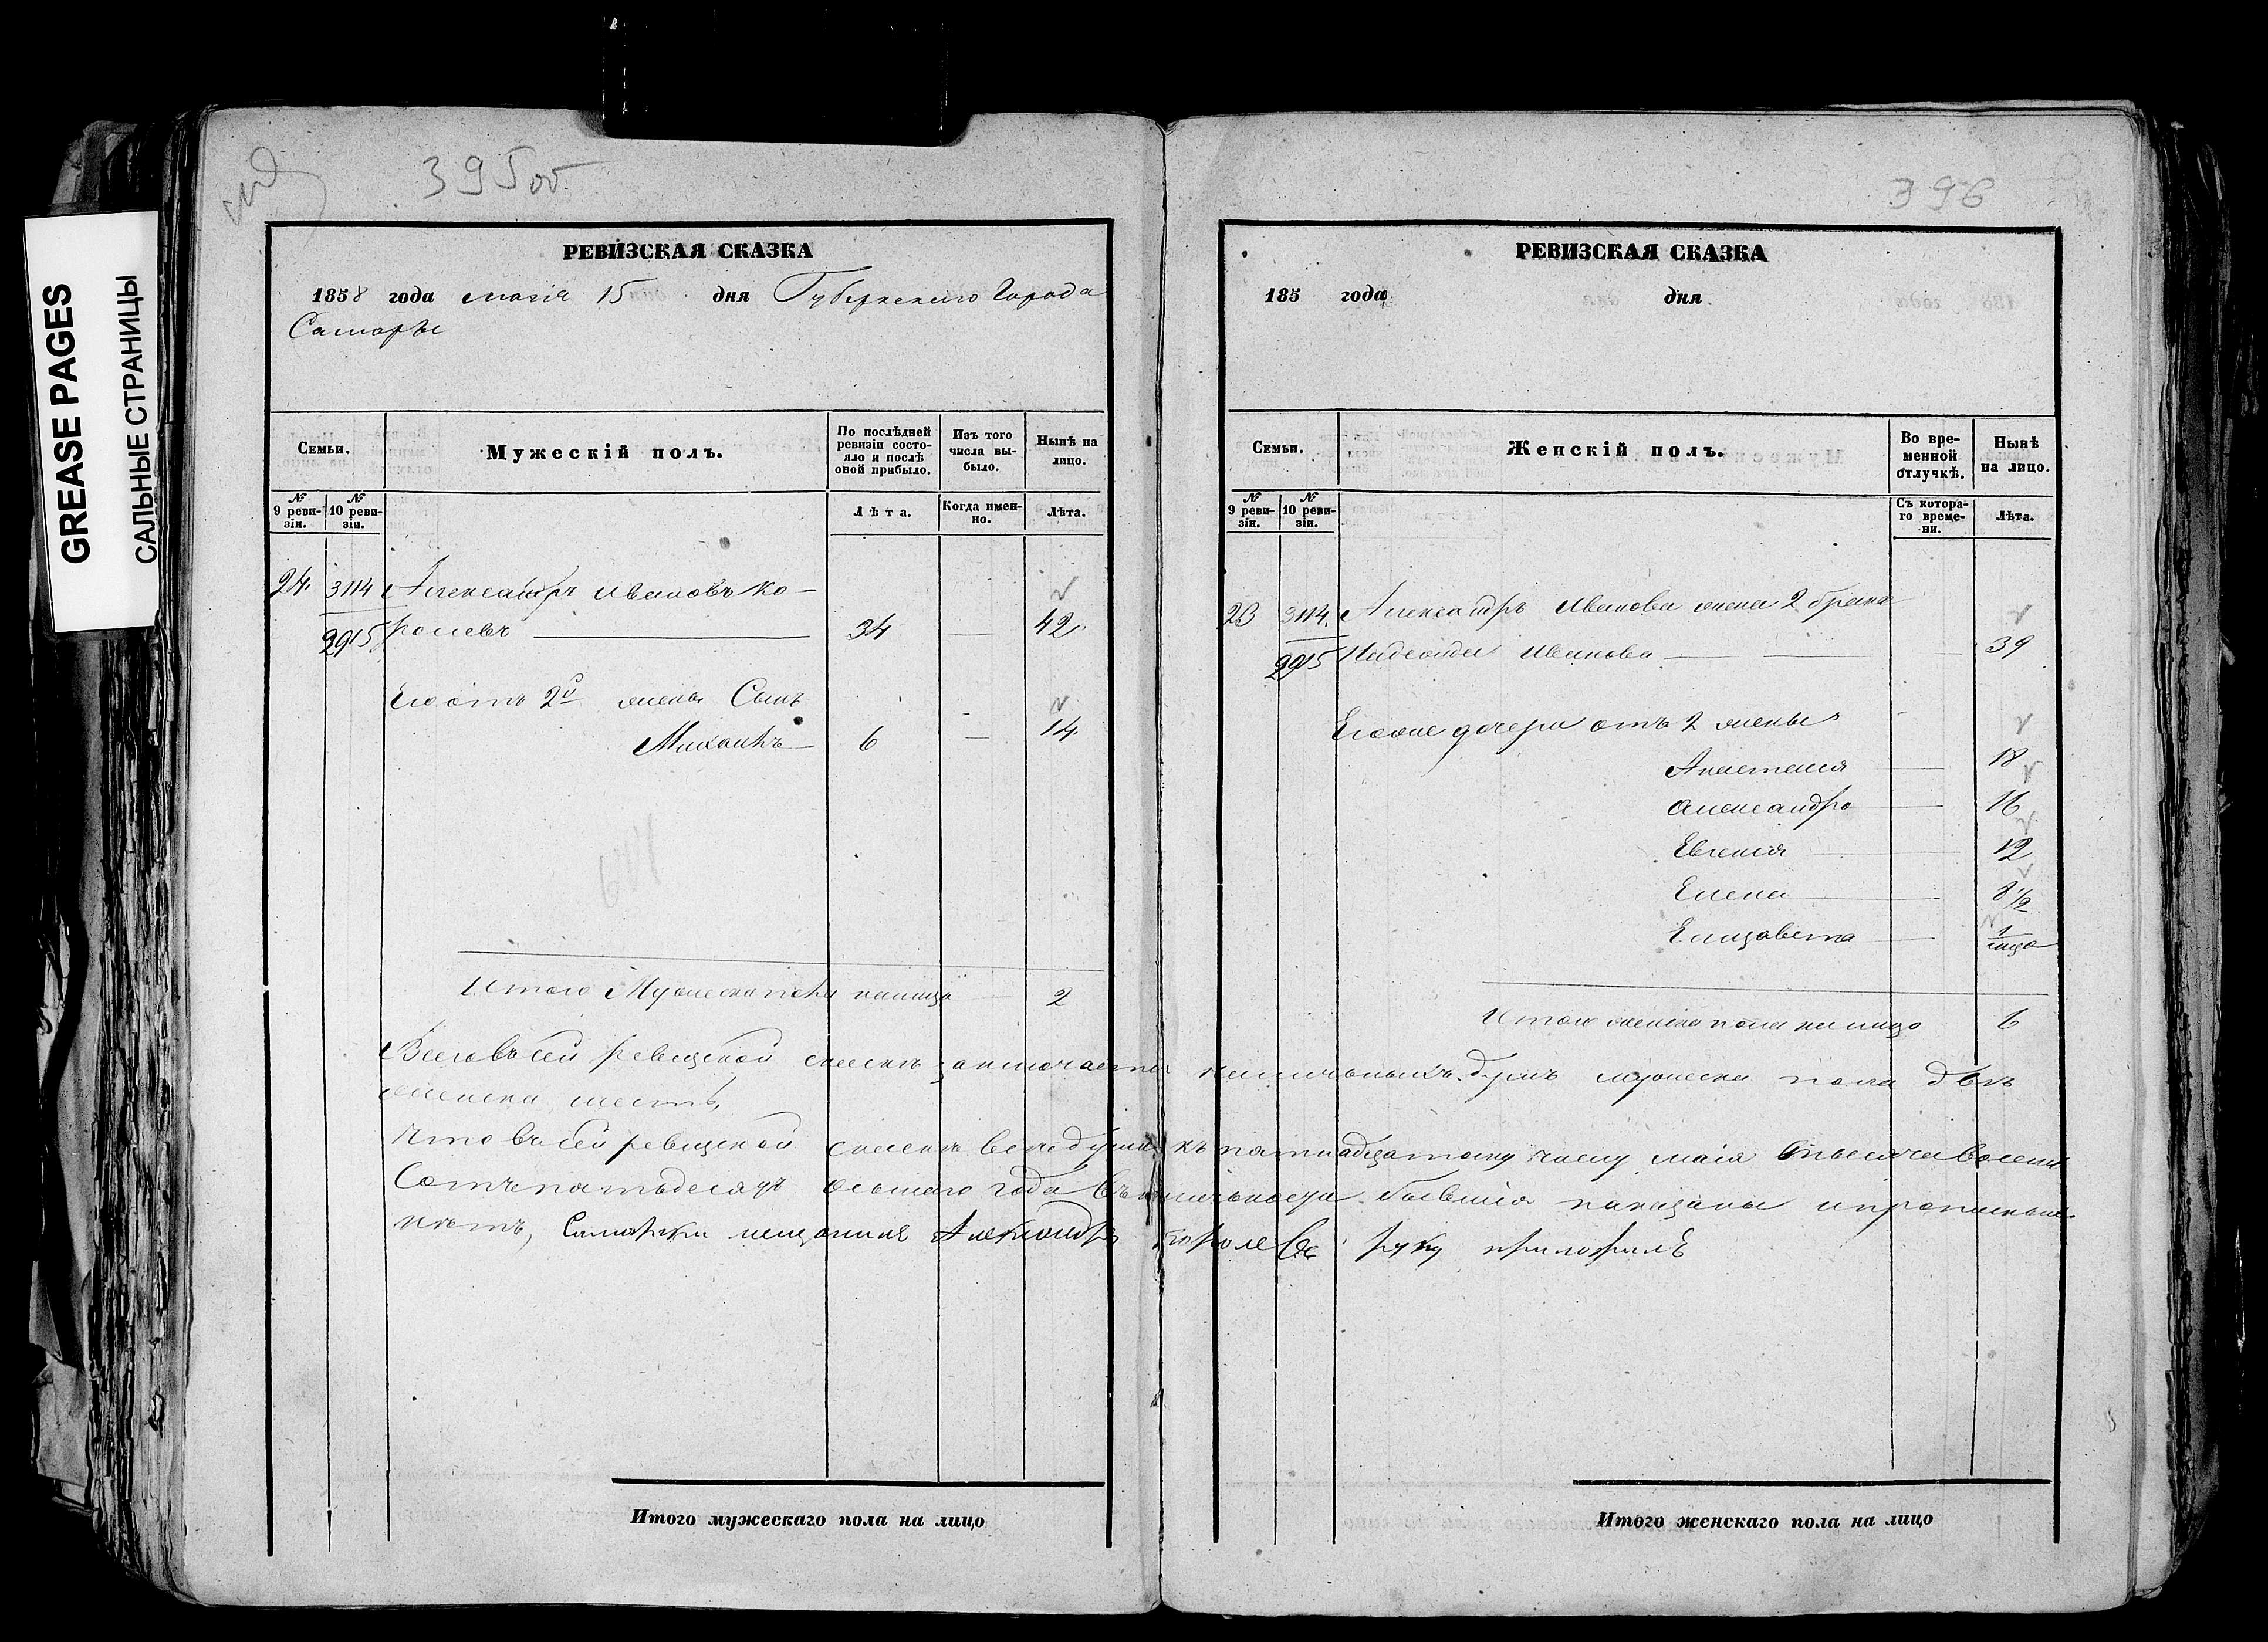 GREASE PAGES
САЛЬНЫЕ СТРАНИЦЫ
395об.
РЕВИЗСКАЯ СКАЗКА
1858 года маія 15 дня Губернскаго Города
Самары
Семьи.
Мужескій полъ.
По послѣдней ревизіи состояло и послѣ оной прибыло.
Изъ того числа выбыло.
Нынѣ на лицо.
№ 9 ревизіи.
№ 10 ревизіи.
Лѣта.
Когда именно.
Лѣта.
24. 3114 Александръ Ивановъ Ко-
2915 ролевъ 34 — 42
Его отъ 2й жены Сынъ
Михаилъ — 6 — 14
Итого Мужеска пола налицо 2
396
РЕВИЗСКАЯ СКАЗКА
185 года дня
Семьи.
Женскій полъ.
Во временной отлучкѣ.
Нынѣ на лицо.
№ 9 ревизіи.
№ 10 ревизіи.
Съ котораго времени.
Лѣта.
23 3114. Александръ Иванова жена 2 брака
2915 Надежда Иванова — — — 39
Еговые дочери отъ 2 жены
Анастасия — 18
Александра — 16
Евгения — 12
Елена — 8 1/2
Елизавета — 1
Итого женска пола на лицо 6
Всего въ сей ревизской сказкѣ заключается наличныхъ душъ мужеска пола двѣ
женска шесть,
Что въ сей ревизской сказкѣ все души къ пятнадцатому числу маія тысяча восемь
Сотъ пятьдесятъ осьмаго года въ наличности бывшія показаны и прописныхъ
нѣтъ, Самарски мещанинъ Александръ Королевъ руку приложилъ
Итого мужескаго пола на лицо
Итого женскаго пола на лицо